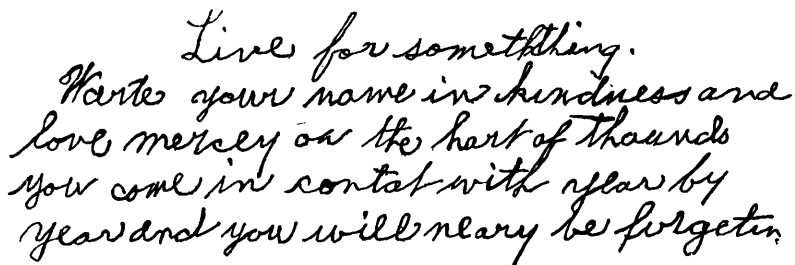 Live for someththing.
Warte your name in kindness and
love mercey on the hart of thounds
you come in contat with year by
year and you will neary be forgetin